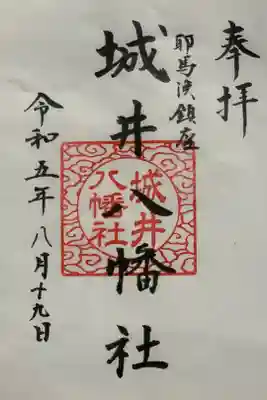 奉拝
耶馬渓鎮座
城井八幡社
城井
八幡社
令和五年八月十九日